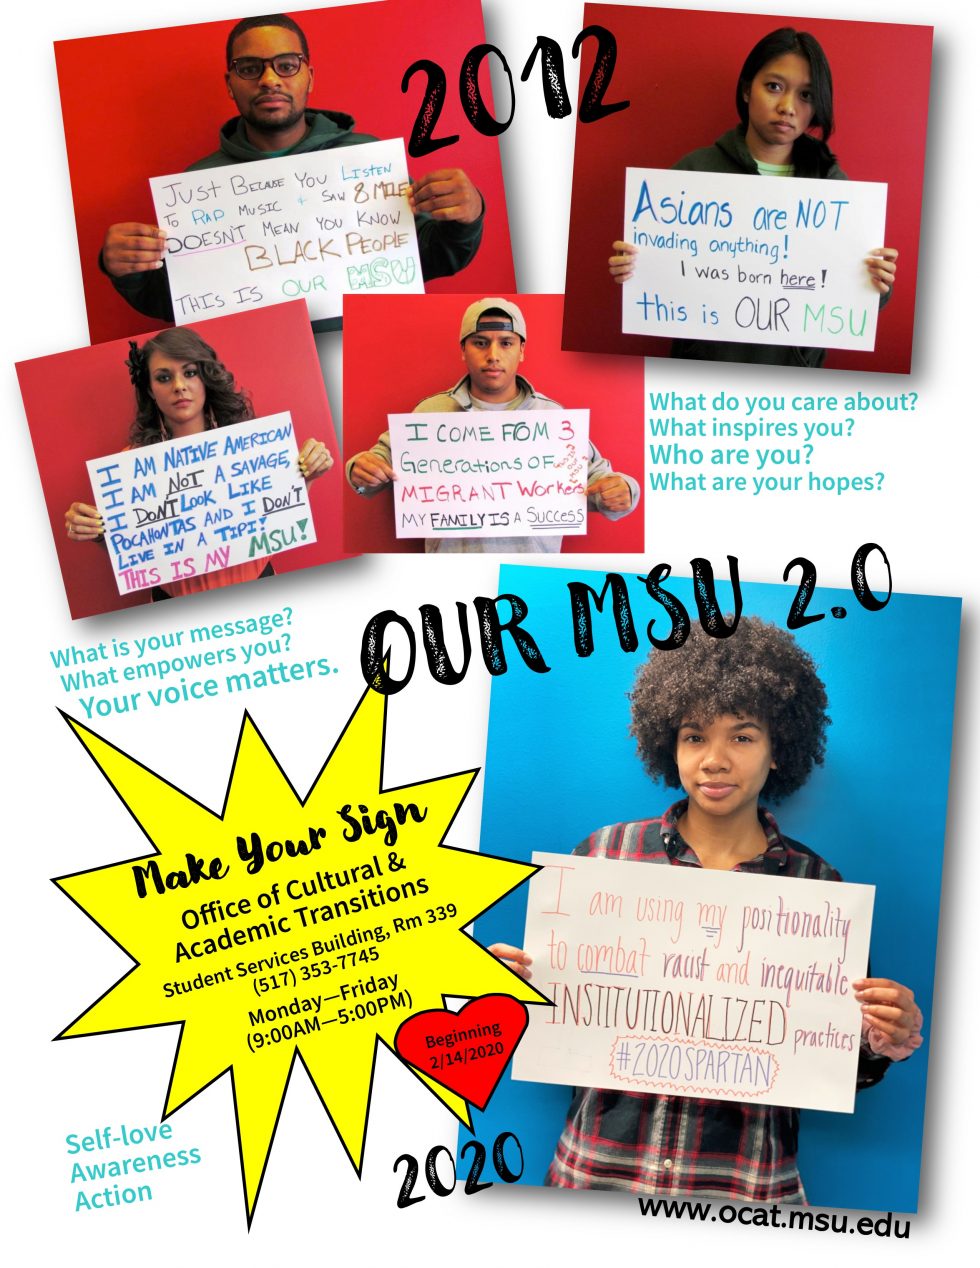 2012
Just Because You Listen
To Rap Music + Saw 8 Mile
DOESN'T Mean You Know
BLACK People
THIS IS OUR MSU
Asians are NOT
invading anything!
I was born here!
this is OUR MSU
I AM NATIVE AMERICAN
I AM NOT A SAVAGE,
I DON'T LOOK LIKE
POCAHONTAS AND I DON'T
LIVE IN A TIPI!
THIS IS MY MSU!
I COME FROM 3
Generations OF
MIGRANT Workers
MY FAMILY IS A SUCCESS
What do you care about?
What inspires you?
Who are you?
What are your hopes?
OUR MSU 2.0
What is your message?
What empowers you?
Your voice matters.
Make Your Sign
Office of Cultural &
Academic Transitions
Student Services Building, Rm 339
(517) 353-7745
Monday—Friday
(9:00AM—5:00PM)
Beginning
2/14/2020
I am using my positionality
to combat racist and inequitable
INSTITUTIONALIZED practices
#2020SPARTAN
Self-love
Awareness
Action
2020
www.ocat.msu.edu